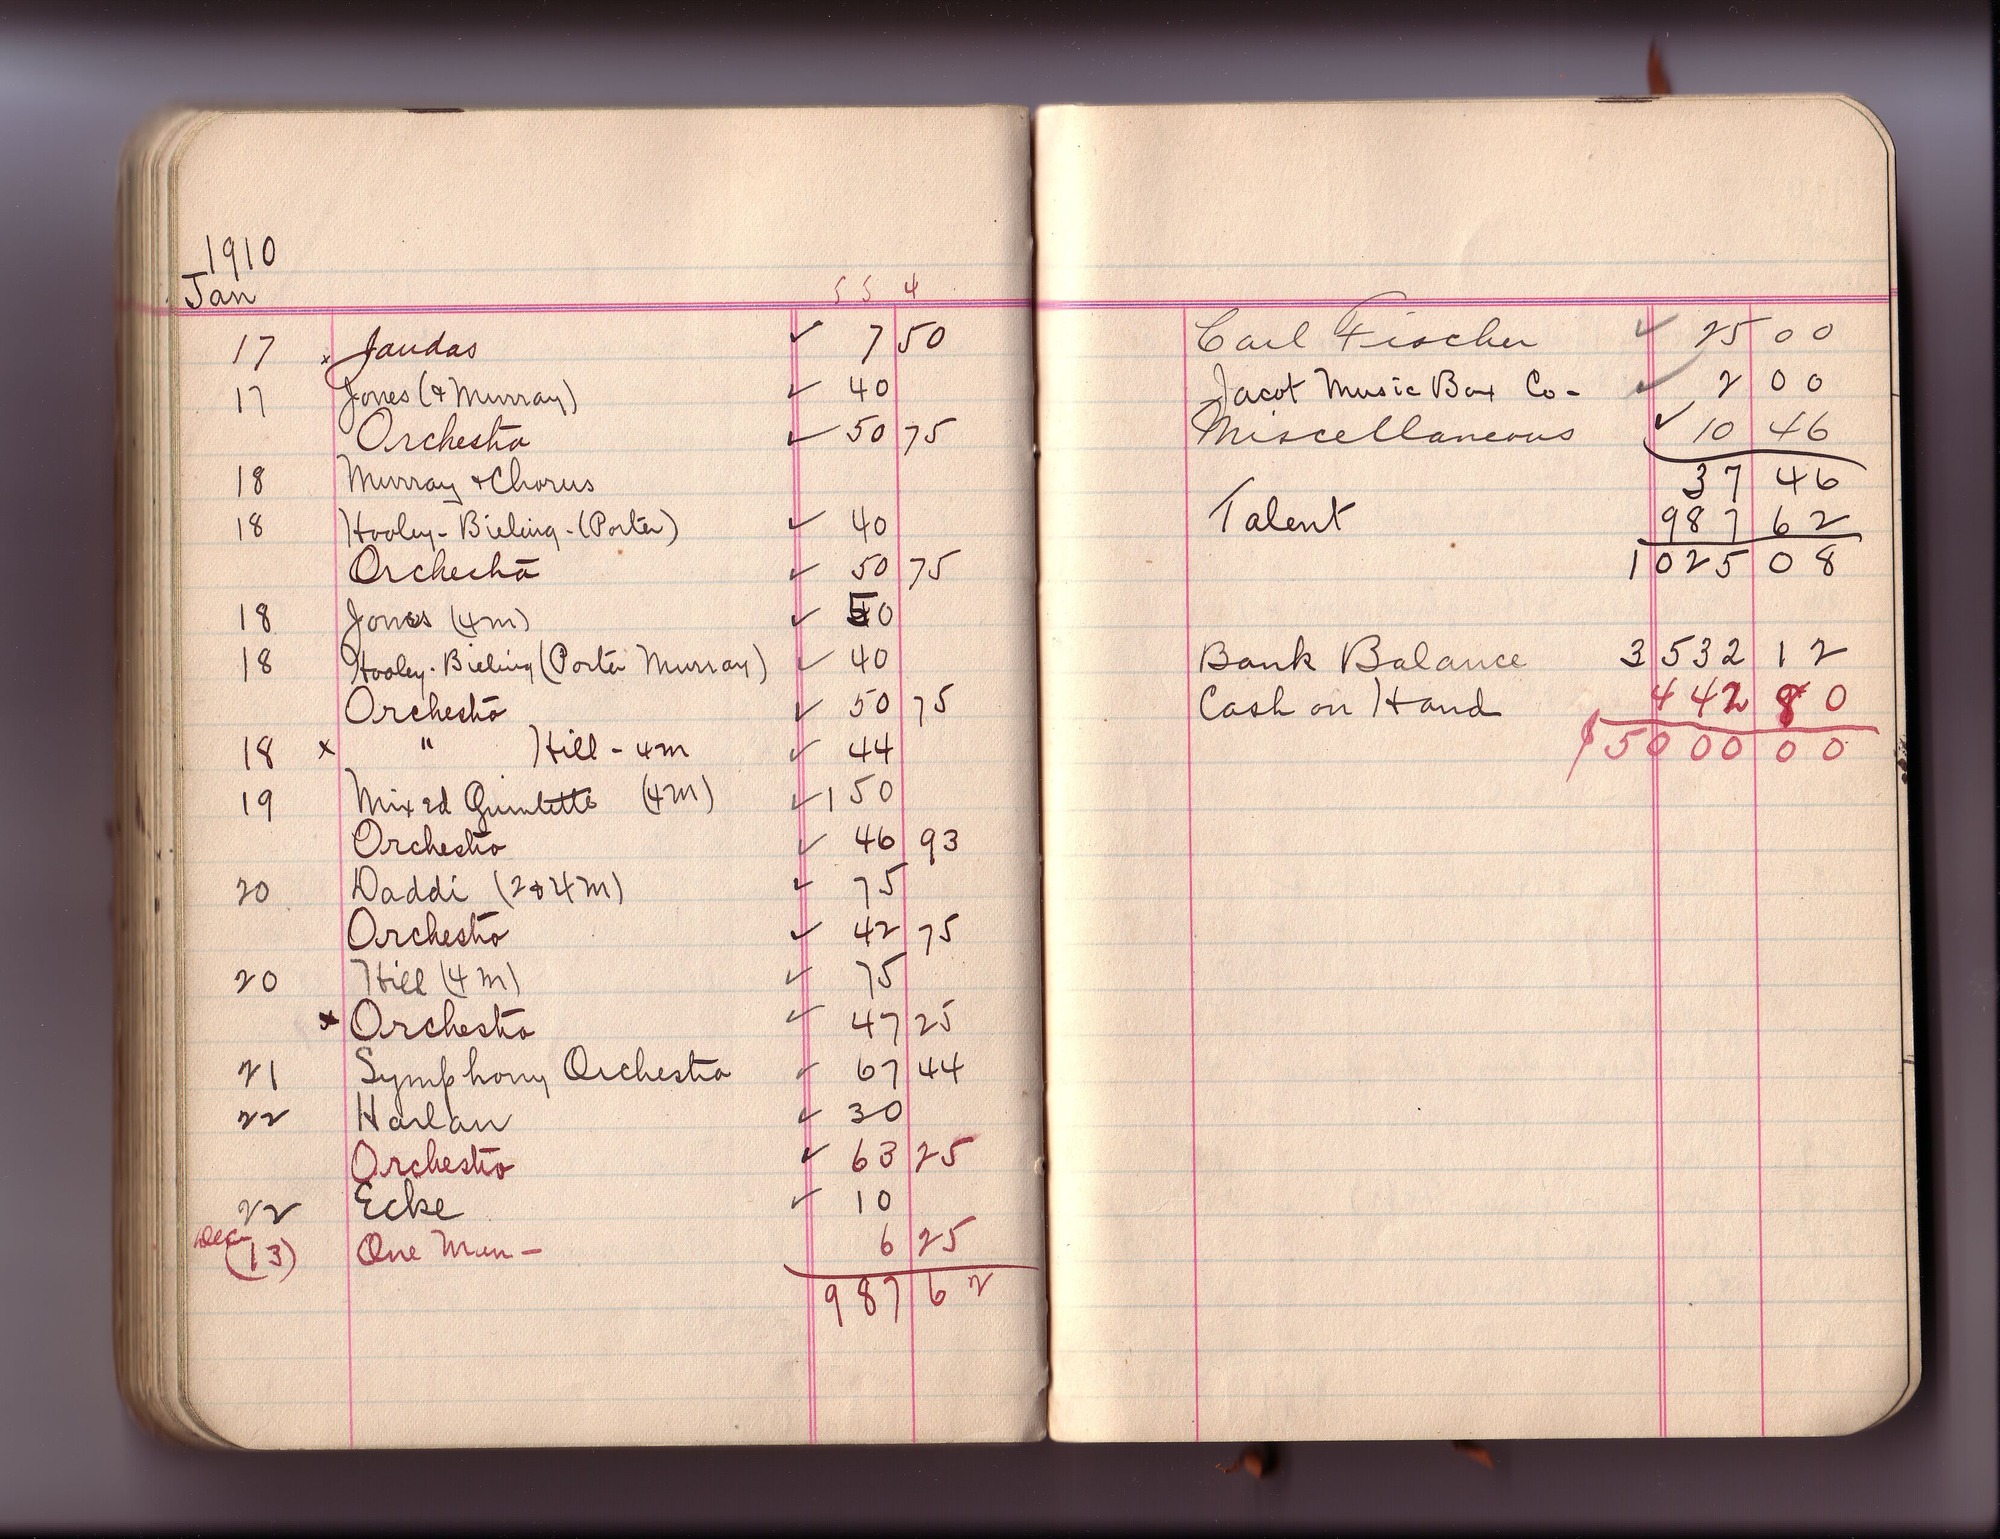 1910
Jan
5 5 4
17 x Jaudas ✓ 7 50
17 Jones (& Murray) ✓ 40
Orchestra ✓ 50 75
18 Murray & Chorus
18 Hooley - Bieling - (Porter) ✓ 40
Orchestra ✓ 50 75
18 Jones (4m) ✓ 50
18 Hooley - Bieling (Porter Murray) ✓ 40
Orchestra ✓ 50 75
18 x " Hill - 4m ✓ 44
19 Mixed Quintette (4m) ✓ 150
Orchestra ✓ 46 93
20 Daddi (2 & 4m) ✓ 75
Orchestra ✓ 42 75
20 Hill (4m) ✓ 75
x Orchestra ✓ 47 25
21 Symphony Orchestra ✓ 67 44
22 Harlan ✓ 30
Orchestra ✓ 63 25
22 Ecke ✓ 10
Dec (13) One Man - 6 25
987 62
Carl Fischer ✓ 25 00
Jacot Music Box Co - ✓ 2 00
Miscellaneous ✓ 10 46
37 46
Talent 987 62
1025 08
Bank Balance 3532 12
Cash on Hand 442 80
$5000 00